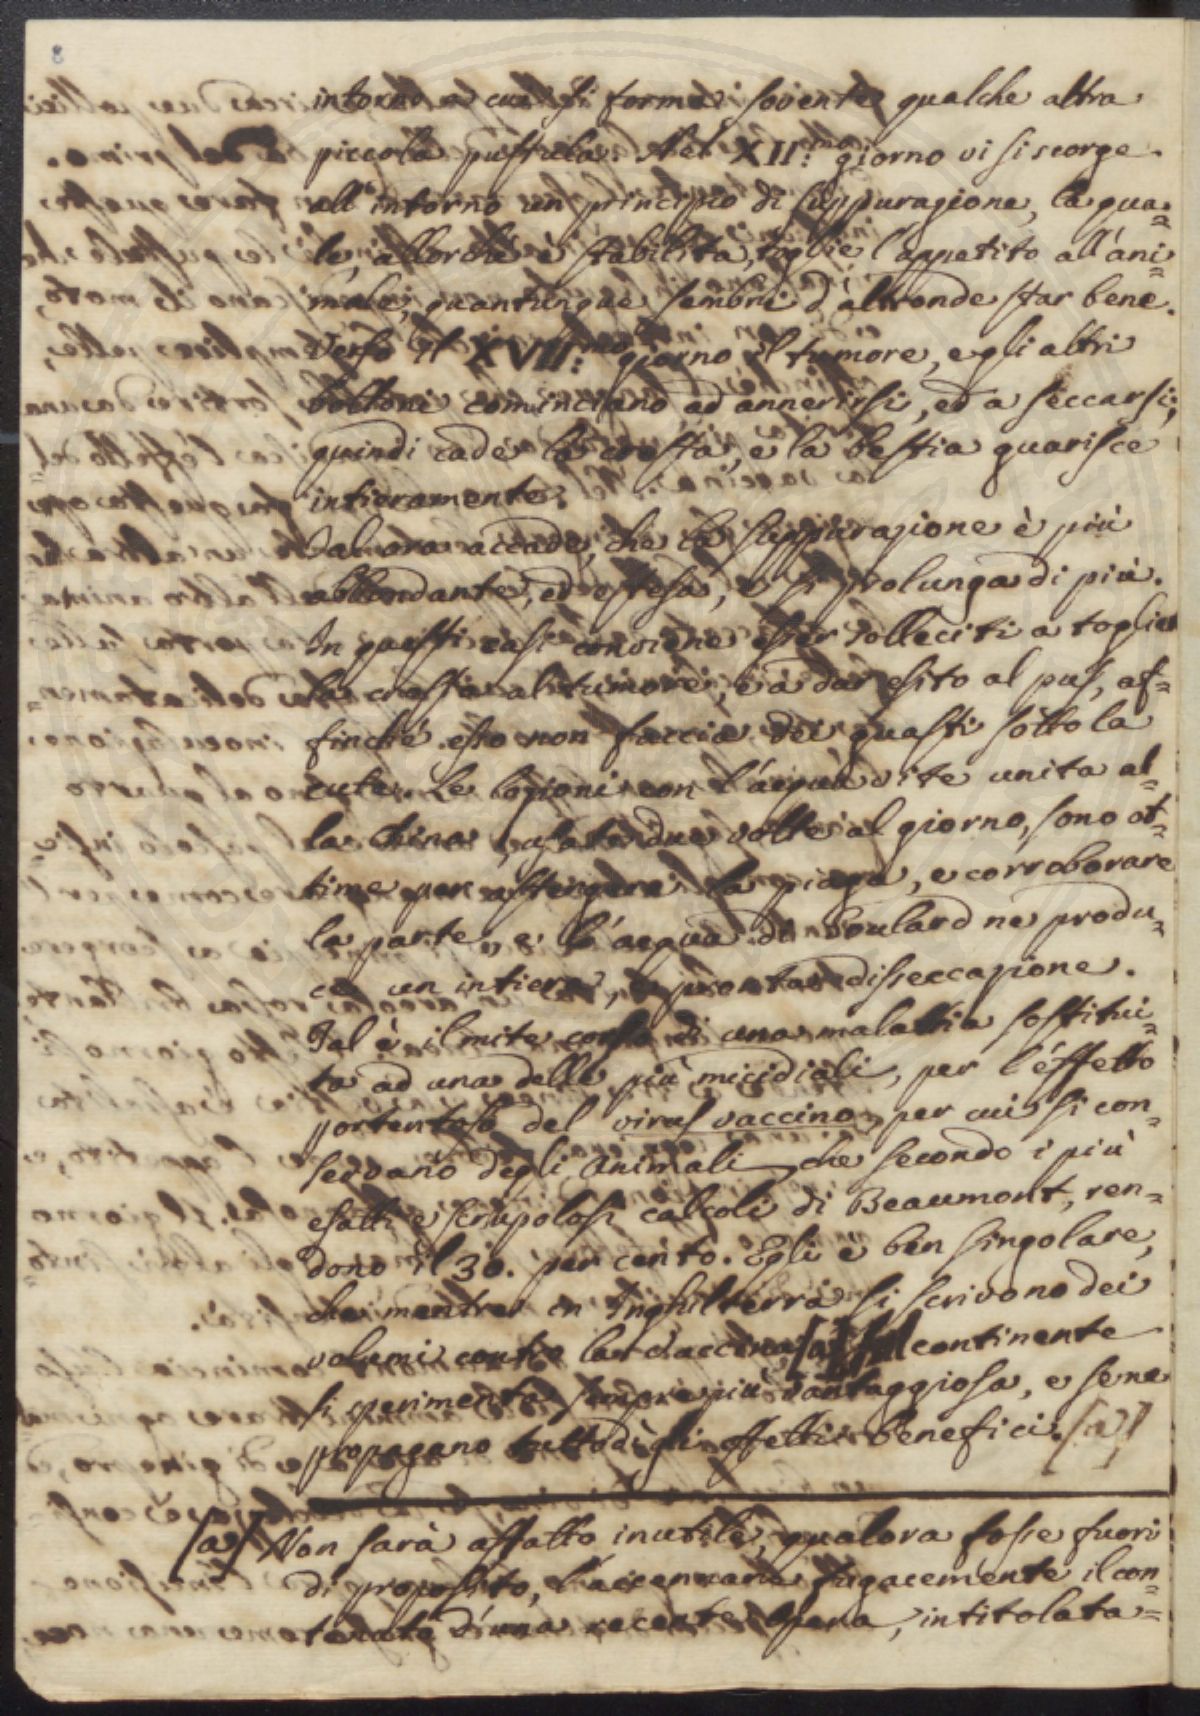 8
intorno a cui si forma sovente qualche altra
piccola pustula. Nel XII:mo giorno vi si scorge
all'intorno un principio di suppurazione, la qua=
le, allorchè è stabilita, toglie l'appetito all'ani=
male, quantunque sembri d'altronde star bene.
Verso il XVII:mo giorno il tumore, e gli altri
bottoni cominciano ad annerirsi, ed a seccarsi;
quindi cade la crosta, e la bestia guarisce
intieramente.
Talora accade, che la suppurazione è più
abbondante, ed estesa, e si prolunga di più.
In questi casi conviene esser solleciti a toglier
la crosta al tumore, e a dar esito al pus, af=
finchè esso non faccia dei guasti sotto la
cute. Le lozioni con l'acqua vite unita al=
la China, usate due volte al giorno, sono ot=
time per astergere la piaga, e corroborare
la parte, e l'acqua di Goulard ne produ=
ce un intiera, e pronta disseccazione.
Tal è il mite corso di una malattia sostitui=
ta ad una delle più micidiali, per l'effetto
portentoso del virus vaccino, per cui si con=
servano degli animali, che secondo i più
esatti e scrupolosi calcoli di Beaumont, ren=
dono il 30. per cento. Egli è ben singolare,
che mentre in Inghilterra si scrivono dei
volumi contro la vaccina, continente
si sperimenta sempre più vantaggiosa, e se ne
propagano tuttodì gli effetti benefici. [a]
[a] Non sarà affatto inutile, qualora fosse fuori
di proposito, l'accennare fugacemente il con=
tenuto d'una recente Opera, intitolata=